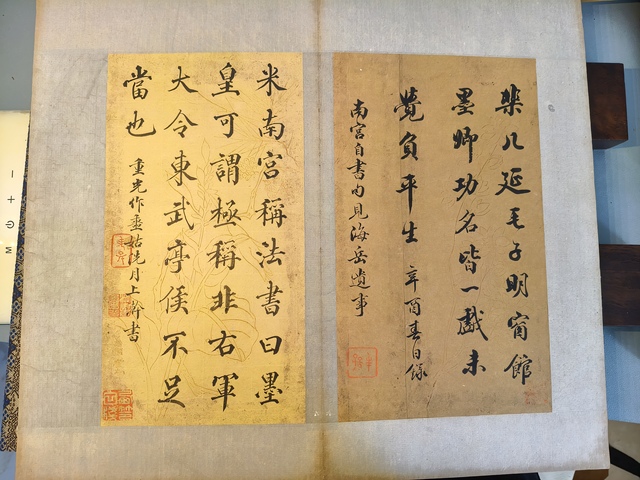 棐几延毛子明窗館
墨卿功名皆一戲未
覺負平生 辛酉春日
南宮自書句見海岳遺事
米南宮稱法書曰墨
皇可謂極稱非右軍
大令東武亭侯不足
當也 重光作噩姑洗月上澣書